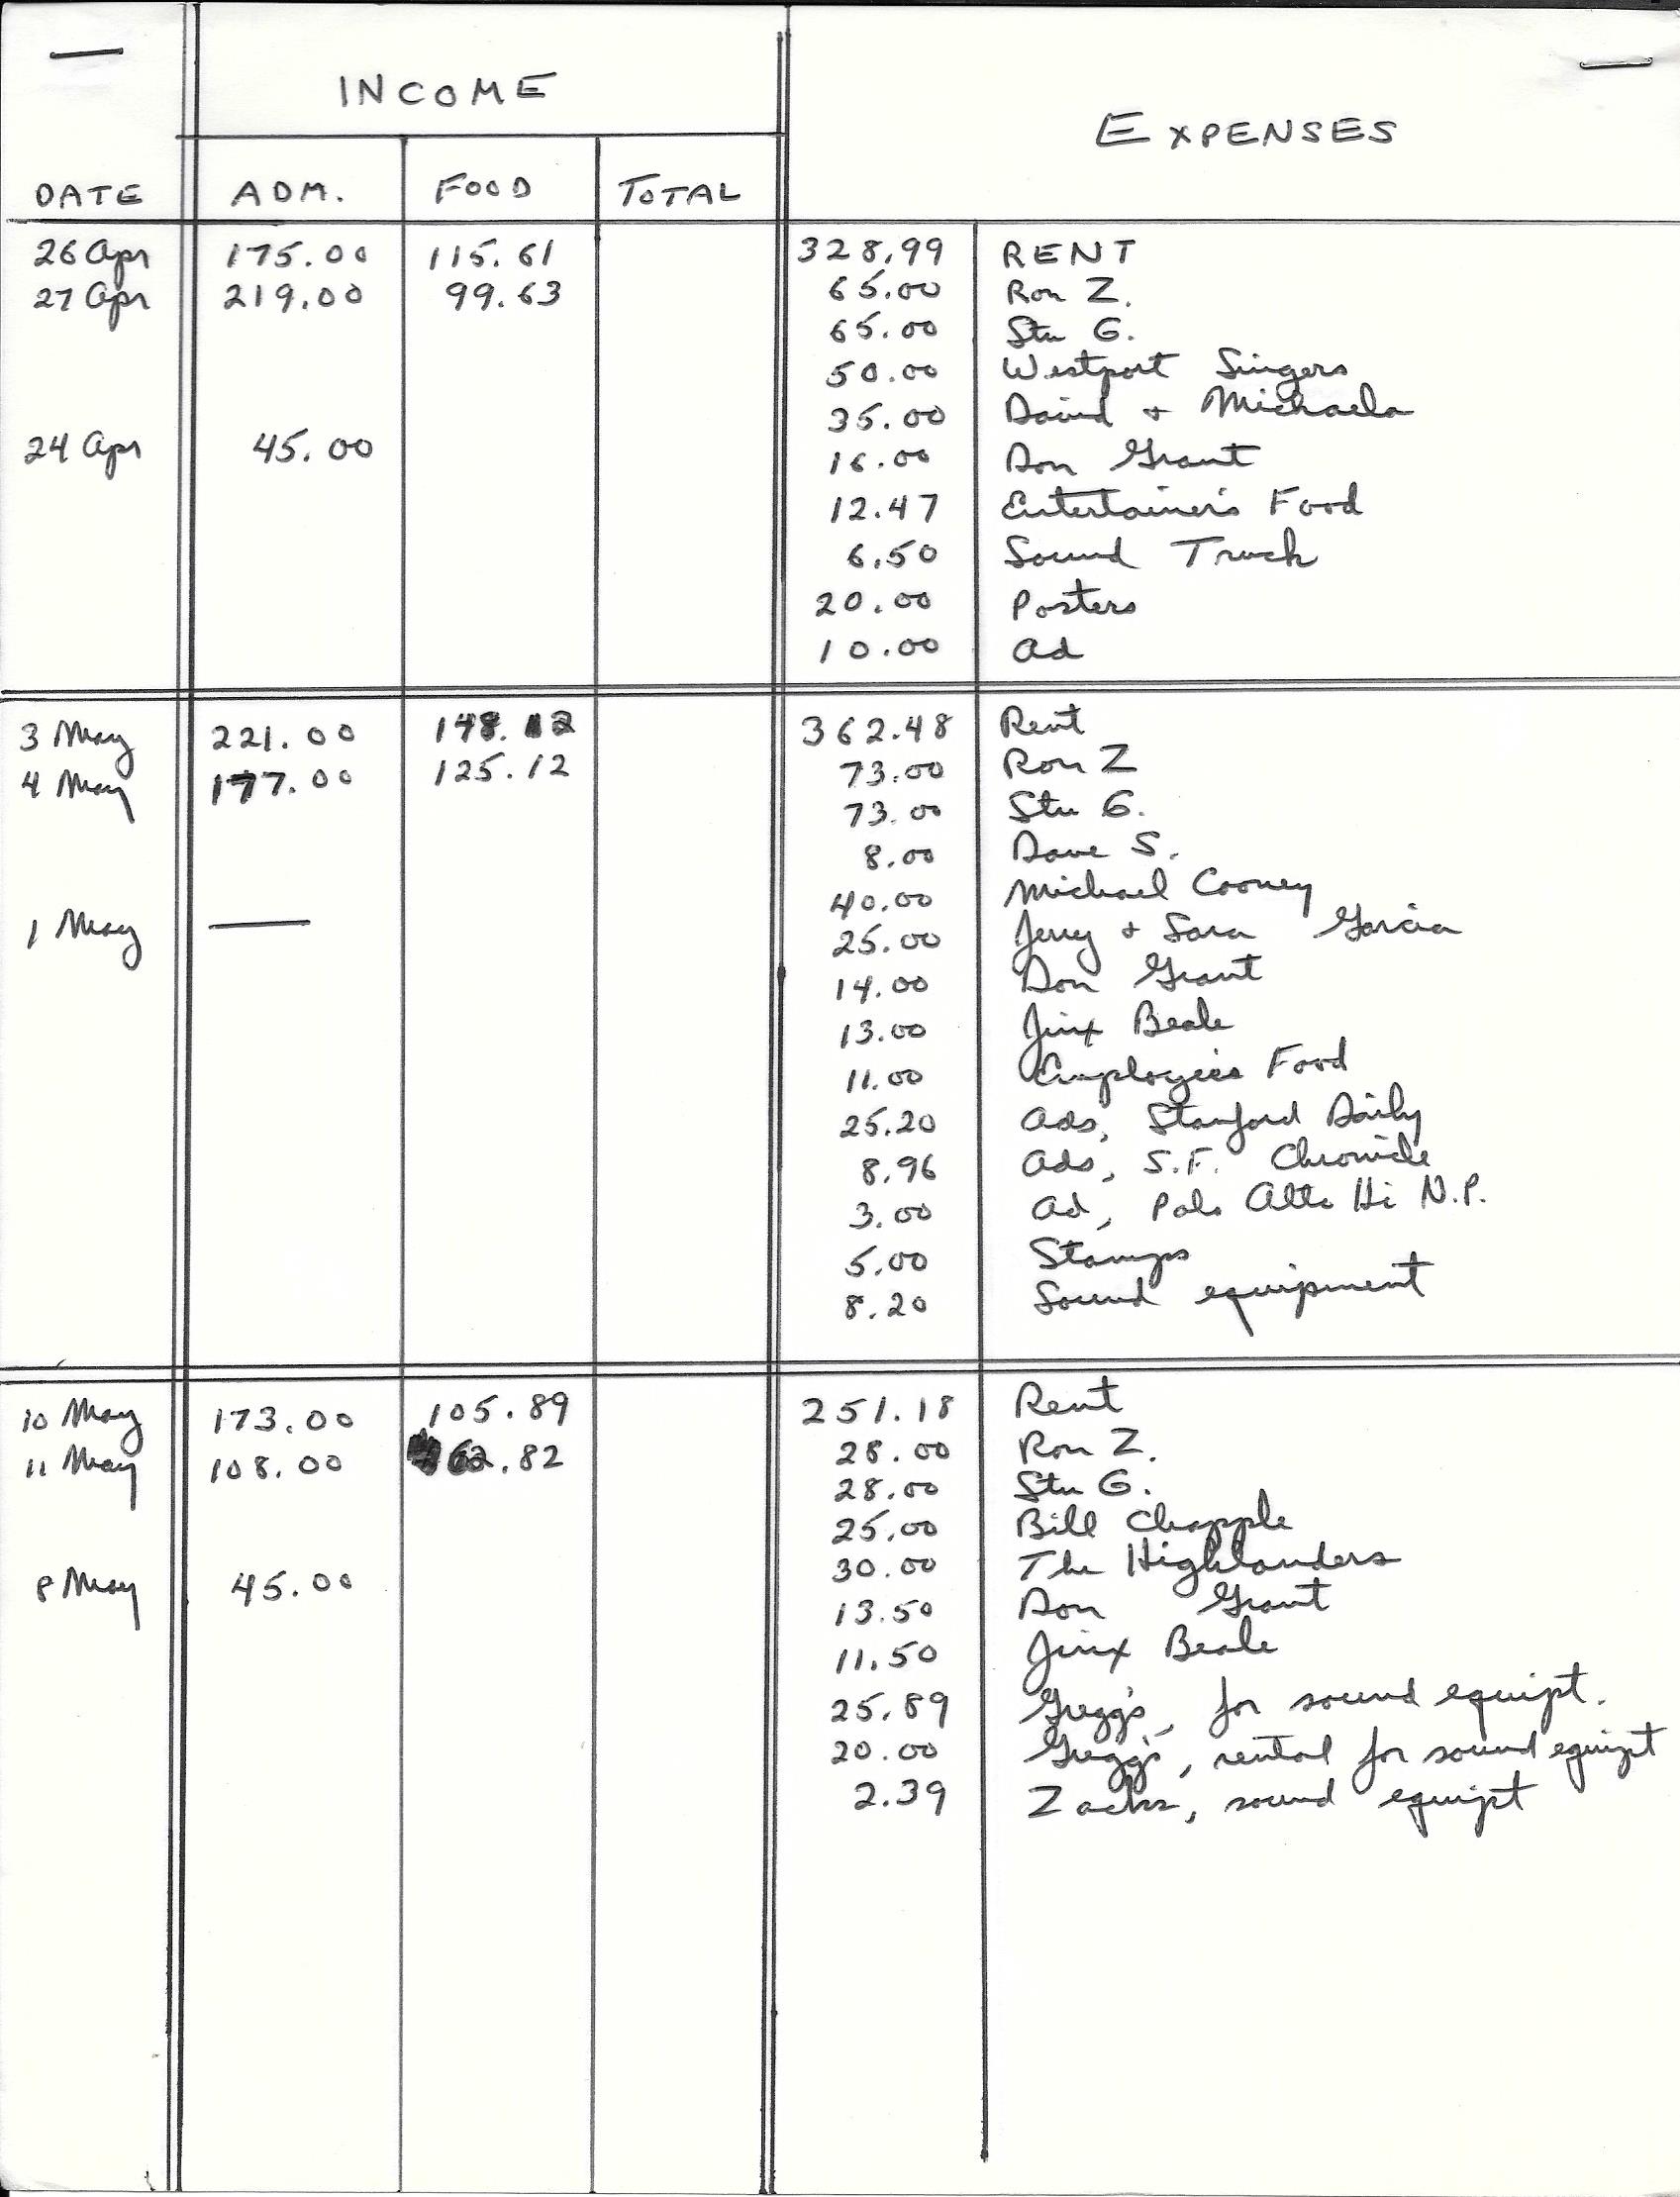 INCOME
EXPENSES
DATE ADM. FOOD TOTAL
26 Apr 175.00 115.61 328.99 RENT
27 Apr 219.00 99.63 65.00 Ron Z.
65.00 Stu G.
50.00 Westport Singers
35.00 David + Michaela
24 Apr 45.00 16.00 Don Grant
12.47 Entertainer's Food
6.50 Sound Truck
20.00 Posters
10.00 Ad
3 May 221.00 148.12 362.48 Rent
4 May 177.00 125.12 73.00 Ron Z
73.00 Stu G.
8.00 Dave S.
40.00 Michael Cooney
1 May — 25.00 Jerry + Sara Garcia
14.00 Don Grant
13.00 Jinx Beale
11.00 Employees Food
25.20 Ads, Stanford Daily
8.96 Ads, S.F. Chronicle
3.00 Ad, Palo Alto Hi N.P.
5.00 Stamps
8.20 Sound equipment
10 May 173.00 105.89 251.18 Rent
11 May 108.00 62.82 28.00 Ron Z.
28.00 Stu G.
25.00 Bill Chapple
30.00 The Highlanders
8 May 45.00 13.50 Don Grant
11.50 Jinx Beale
25.89 Gregg's, for sound equipt.
20.00 Gregg's, rental for sound equipt
2.39 Zacks, sound equipt